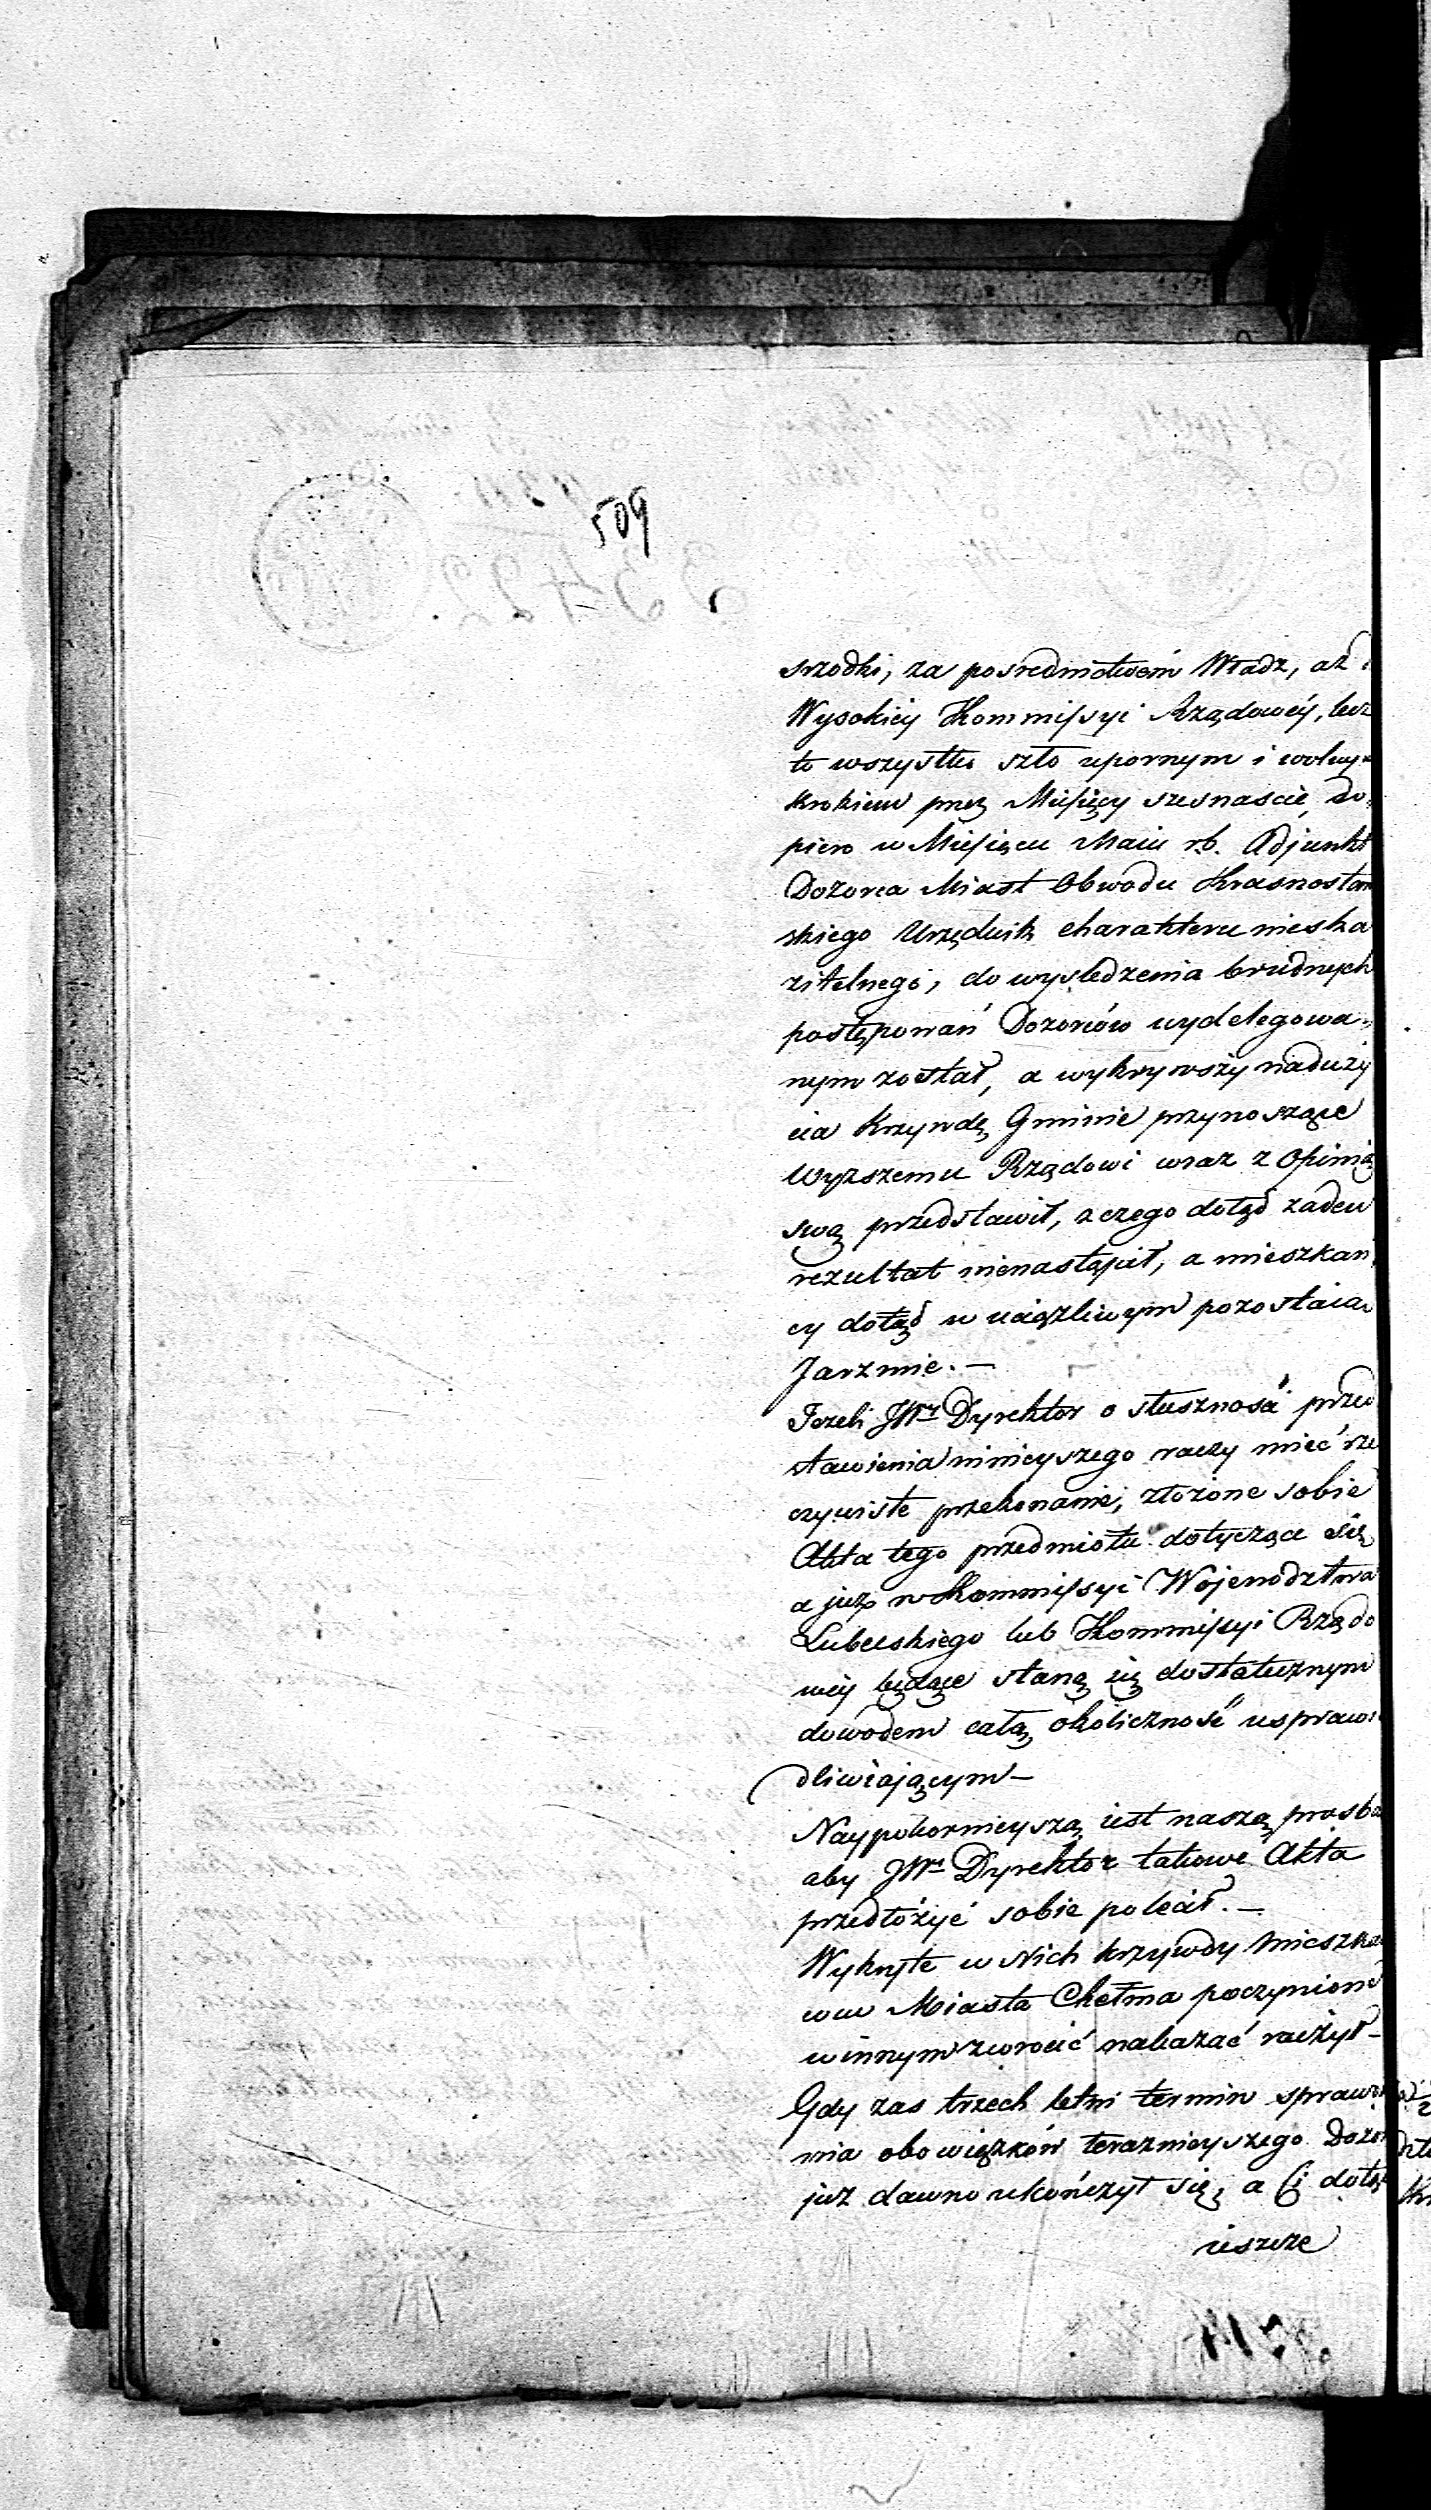 509
srzodki, za posrednictwem Władz, aż
Wysokiey Kommissyi Rządowéy, lecz
to wszystko szło upornym i wolny
krokiem przez Miesięcy szesnascie, do-
piero w Miesiącu Maiu r.b. Adjunkt
Dozorca Miast Obwodu Krasnostaw
skiego Urzędnik charakteru nieska
zitelnego, do wysledzenia brudnych
postępowań Dozorców wydelegowa-
nym został, a wykrywszy naduży
cia Krzywdę Gminie przynoszące
Wyższemu Rządowi wraz z Opinią
swą przedstawił, z czego dotąd żaden
rezultat nienastąpił, a mieszkań
cy dotąd w uciążliwym pozostaia
Jarzmie. —
Jeżeli JWny Dyrektor o słusznośći przed
stawienia ninieyszego raczy mieć rze
czywiste przekonanie, złożone sobie
Akta tego przedmiotu dotyczące się
a już w Kommissyi Województwa
Lubelskiego lub Kommissyi Rządo
wéy będące staną się dostatecznym
dowodem całą okoliczność usprawi
dliwiającym —
Naypokornieyszą iest naszą prosba
aby JWny Dyrektor takowe Akta
przedłożyć sobie polecił. —
Wykryte w Nich krzywdy Mieszka
com Miasta Chełma poczynione
winnym zwrocić nakazać raczył —
Gdy zas trzech letni termin sprawo
nia obowiązków teraznieyszego Dozor
już dawno ukończył się, a Ci dotąd
ieszcze